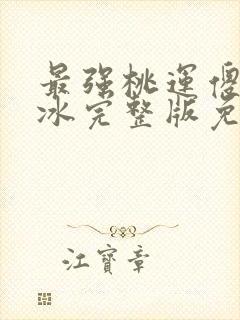 最强桃运傻
冰完整版免
江寶章